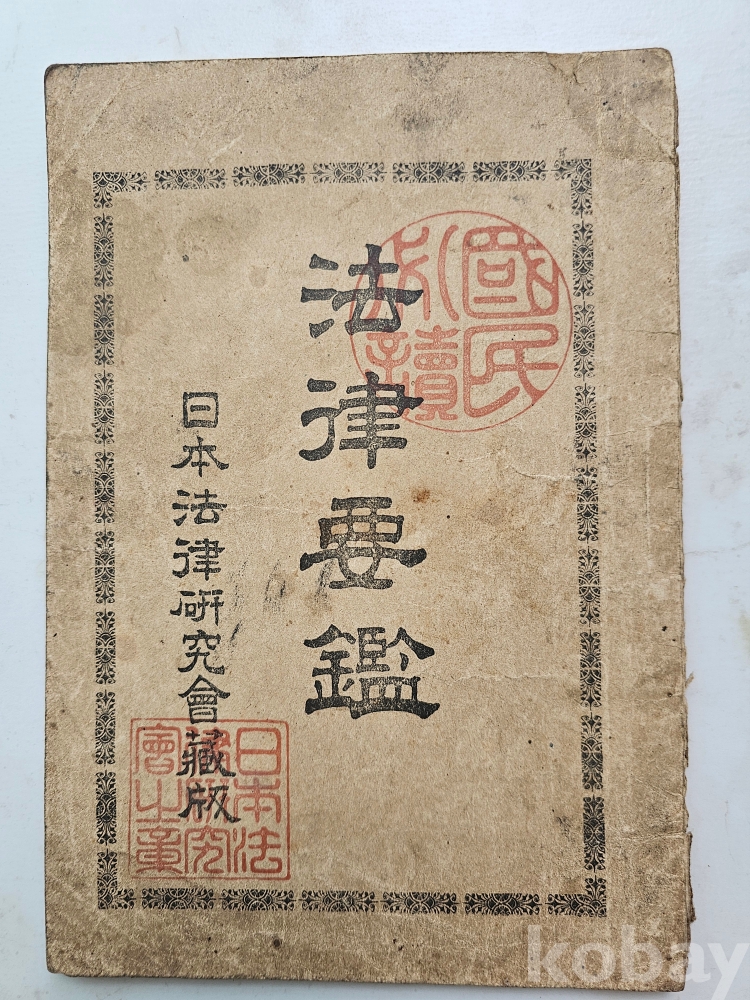 國民
必讀
法律要鑑
日本法律研究會藏版
日本法
律研究
會之章
kobay